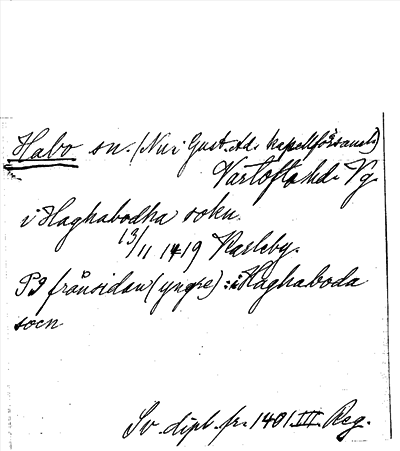 Habo sn. (Nu i Gust. Ad:s kapellförsaml.)
Vartofta hd. Vg.
i Haghabodha sokn.
13/11 1419 Karleby.
På frånsidan (yngre): i Haghaboda
socn
Sv. dipl. fr. 1401 III. Reg.